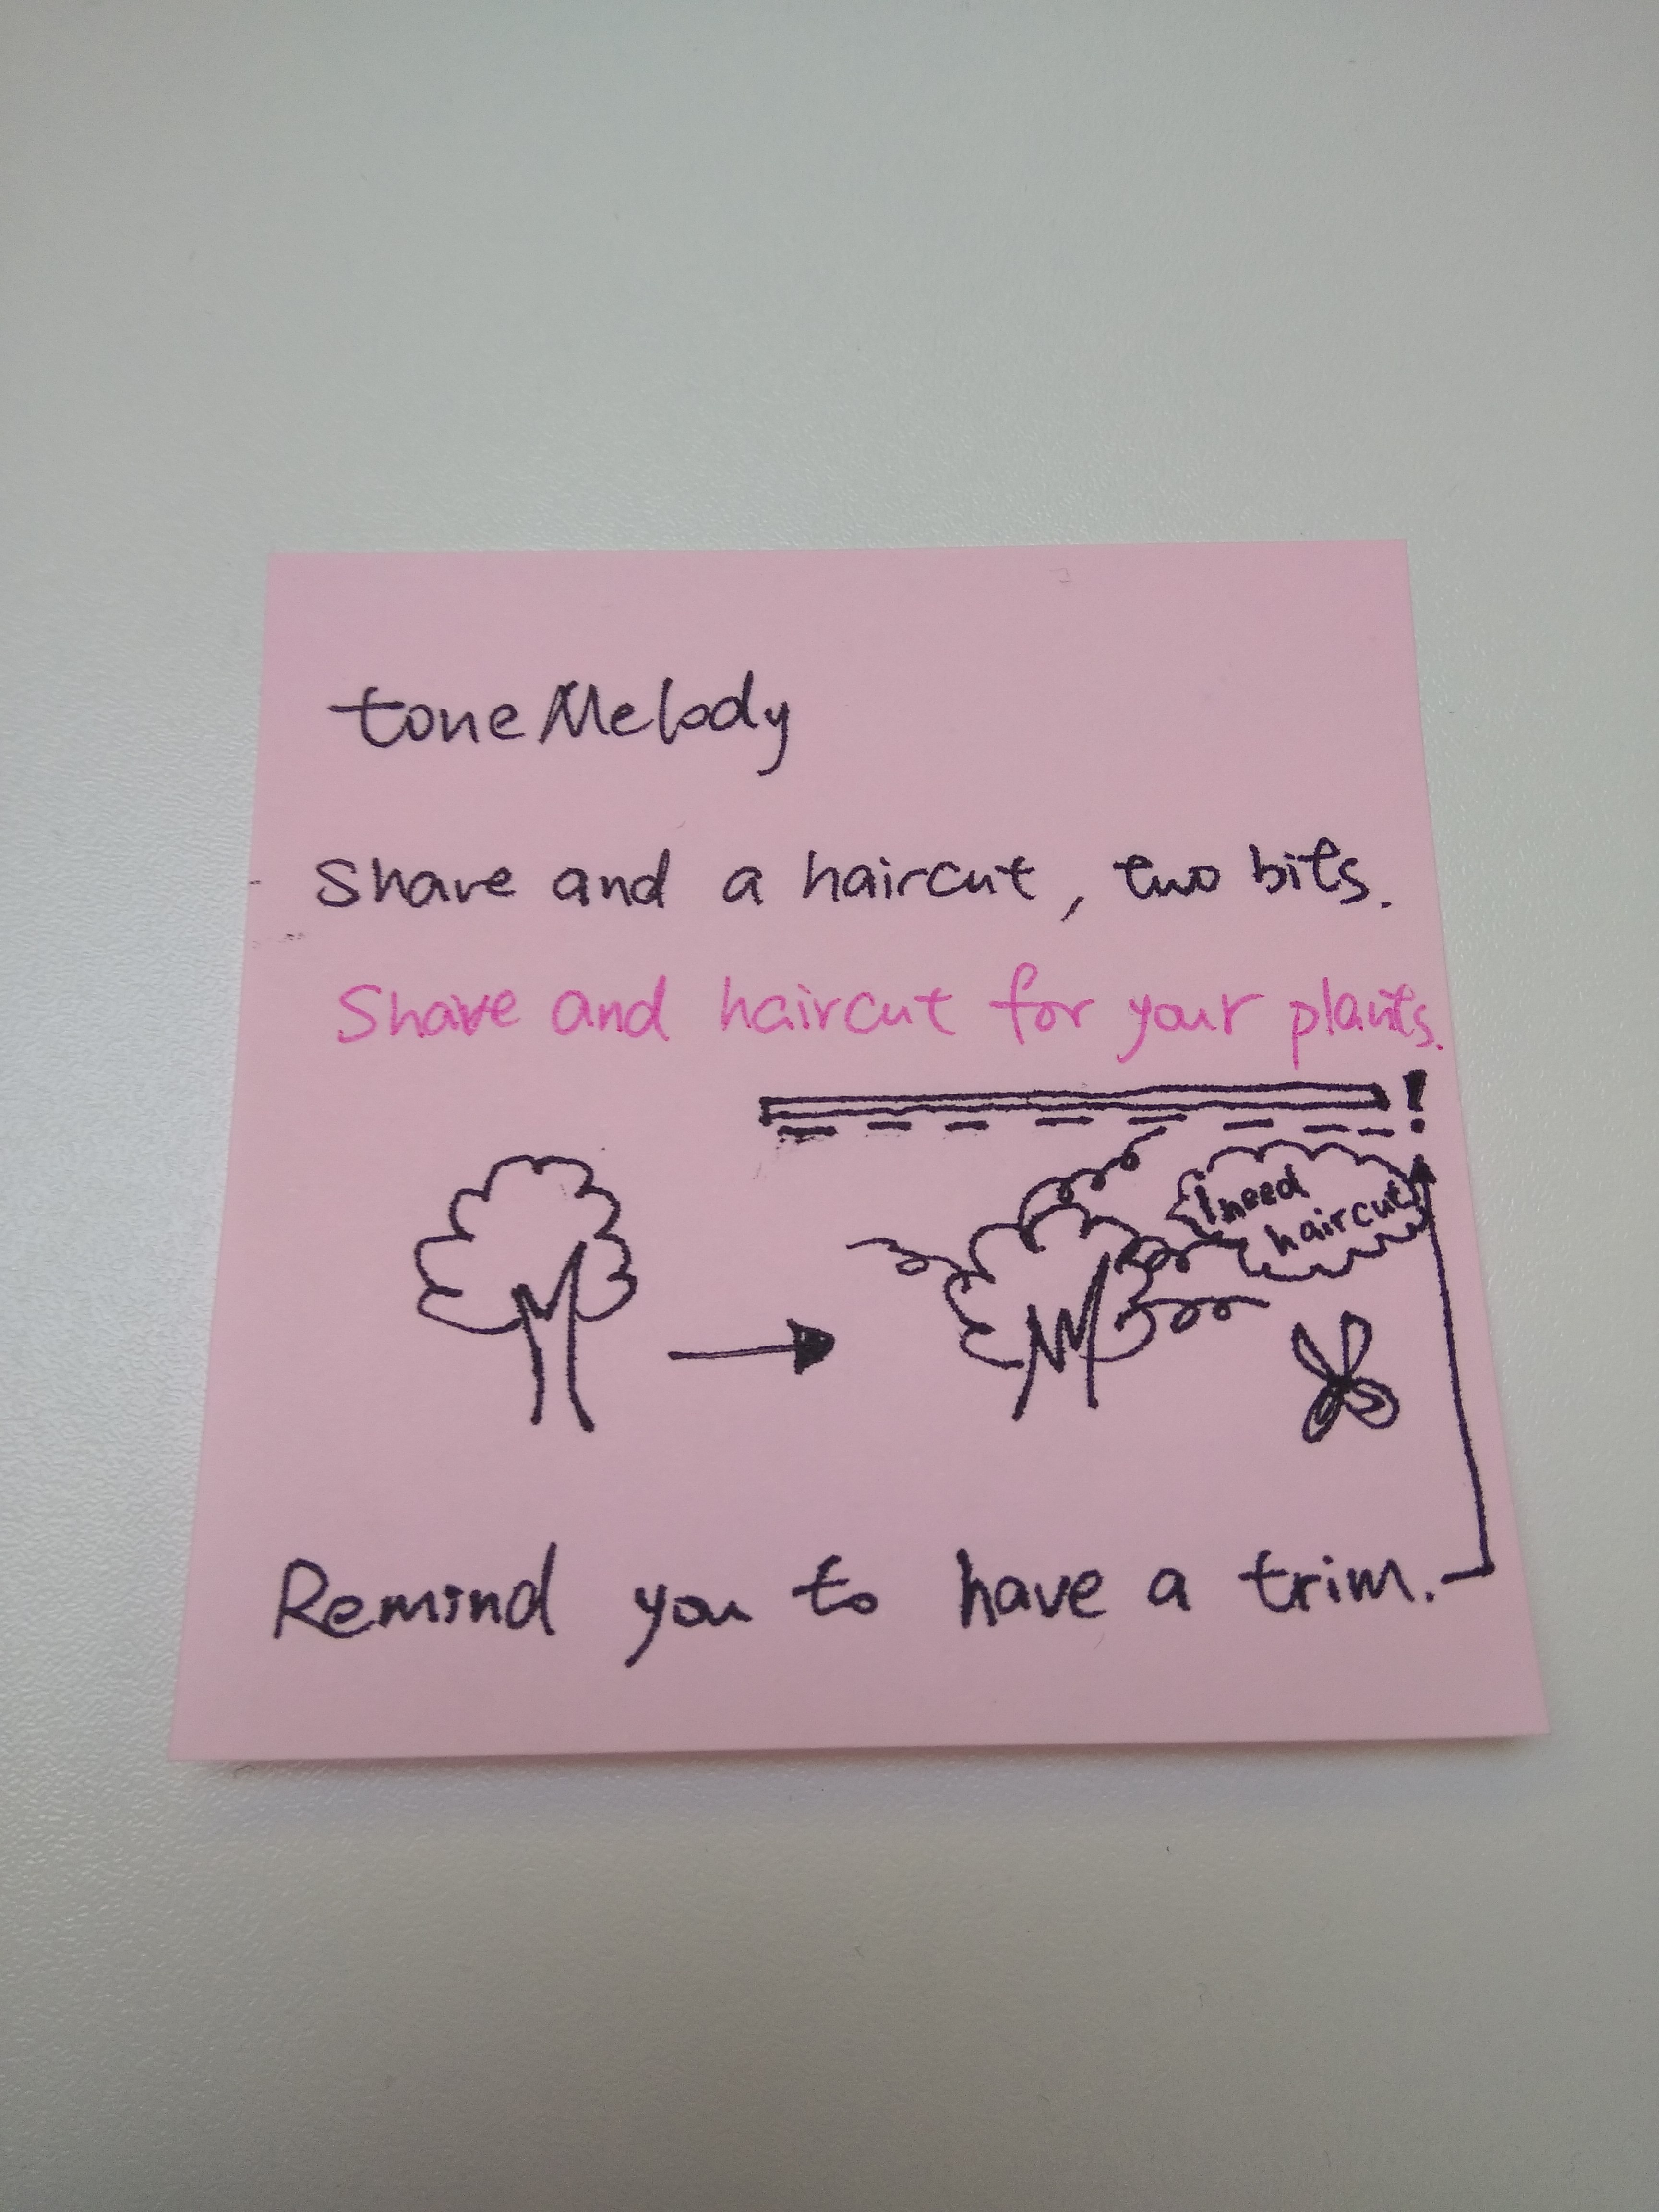 toneMelody
Shave and a haircut, two bits.
Shave and haircut for your plants.
!
I need
haircut
Remind you to have a trim.